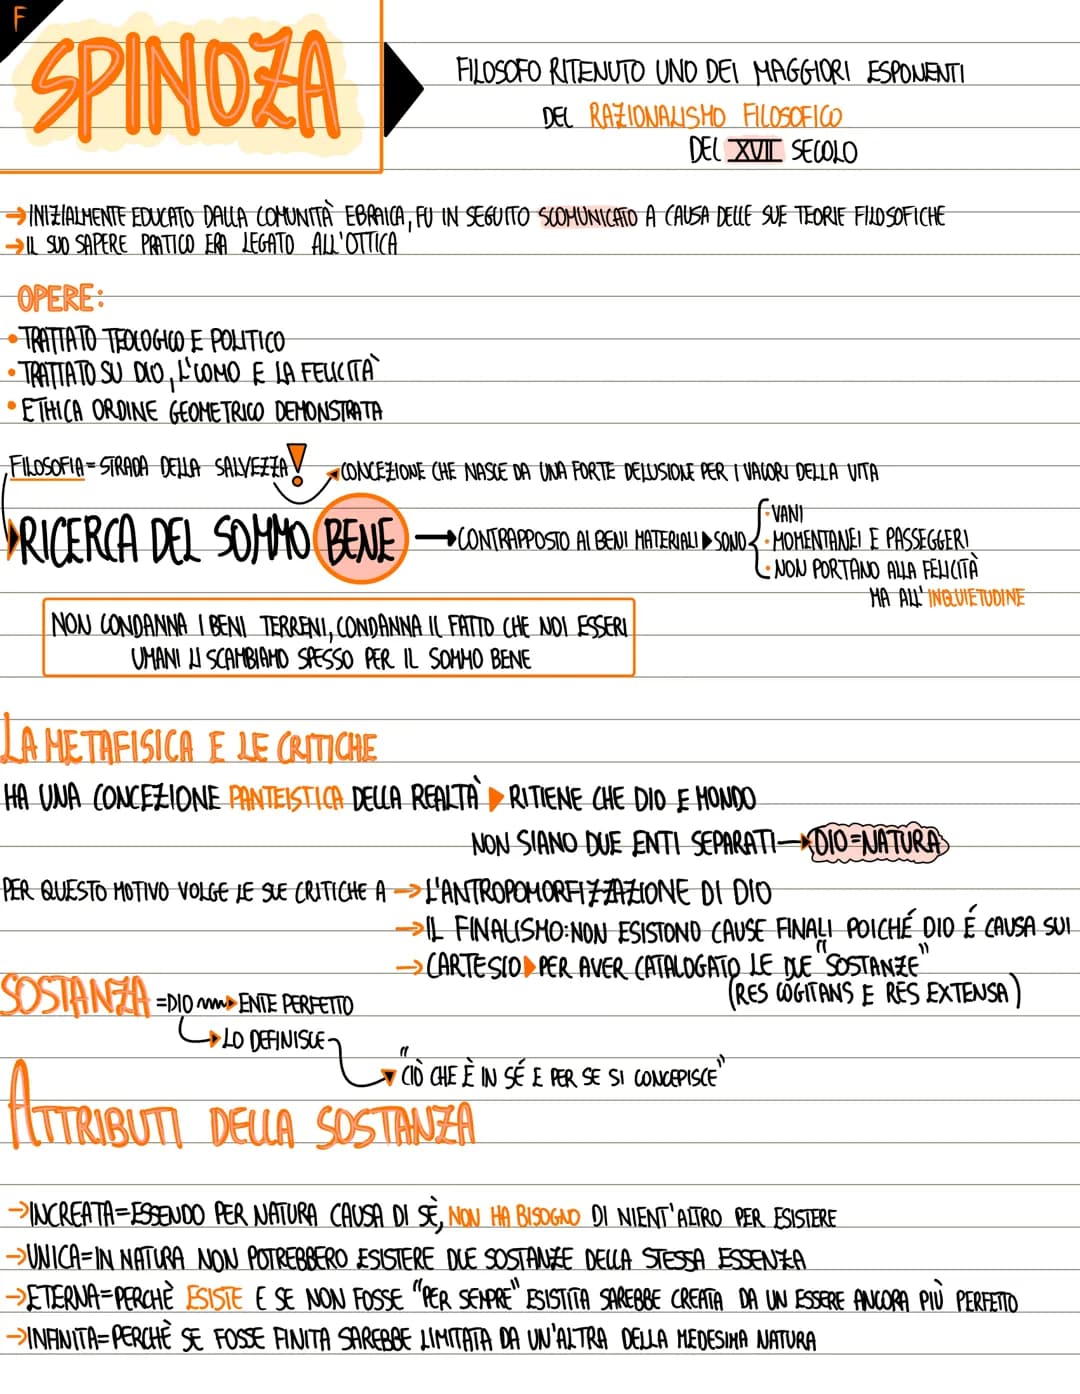 F
SPINOZA
FILOSOFO RITENUTO UNO DEI MAGGIORI ESPONENTI
DEL RAZIONALISMO FILOSOFICO
DEL XVII SECOLO
→INIZIALMENTE EDUCATO DALLA COMUNITÀ EBRAICA, FU IN SEGUITO SCOMUNICATO A CAUSA DELLE SUE TEORIE FILOSOFICHE
→IL SUO SAPERE PRATICO ERA LEGATO ALL'OTTICA
OPERE:
•TRATTATO TEOLOGICO E POLITICO
•TRATTATO SU DIO, L'UOMO E LA FELICITÀ
•ETHICA ORDINE GEOMETRICO DEMONSTRATA
FILOSOFIA=STRADA DELLA SALVEZZA! CONCEZIONE CHE NASCE DA UNA FORTE DELUSIONE PER I VALORI DELLA VITA
RICERCA DEL SOMMO BENE →CONTRAPPOSTO AI BENI MATERIALI▶SONO
•VANI
•MOMENTANEI E PASSEGGERI
•NON PORTANO ALLA FELICITÀ
MA ALL'INQUIETUDINE
NON CONDANNA I BENI TERRENI, CONDANNA IL FATTO CHE NOI ESSERI
UMANI LI SCAMBIAMO SPESSO PER IL SOMMO BENE
LA METAFISICA E LE CRITICHE
HA UNA CONCEZIONE PANTEISTICA DELLA REALTÀ ▶ RITIENE CHE DIO E MONDO
NON SIANO DUE ENTI SEPARATI→DIO=NATURA
PER QUESTO MOTIVO VOLGE LE SUE CRITICHE A →L'ANTROPOMORFIZZAZIONE DI DIO
→IL FINALISMO:NON ESISTONO CAUSE FINALI POICHÉ DIO É CAUSA SUI
→CARTESIO▶PER AVER CATALOGATO LE DUE "SOSTANZE"
(RES COGITANS E RES EXTENSA)
SOSTANZA =DIO ▶ENTE PERFETTO
LO DEFINISCE
"CIÒ CHE È IN SÉ E PER SE SI CONCEPISCE"
ATTRIBUTI DELLA SOSTANZA
→INCREATA=ESSENDO PER NATURA CAUSA DI SÈ, NON HA BISOGNO DI NIENT'ALTRO PER ESISTERE
→UNICA=IN NATURA NON POTREBBERO ESISTERE DUE SOSTANZE DELLA STESSA ESSENZA
→ETERNA=PERCHÈ ESISTE E SE NON FOSSE "PER SEMPRE" ESISTITA SAREBBE CREATA DA UN ESSERE ANCORA PIÙ PERFETTO
→INFINITA=PERCHÈ SE FOSSE FINITA SAREBBE LIMITATA DA UN'ALTRA DELLA MEDESIMA NATURA